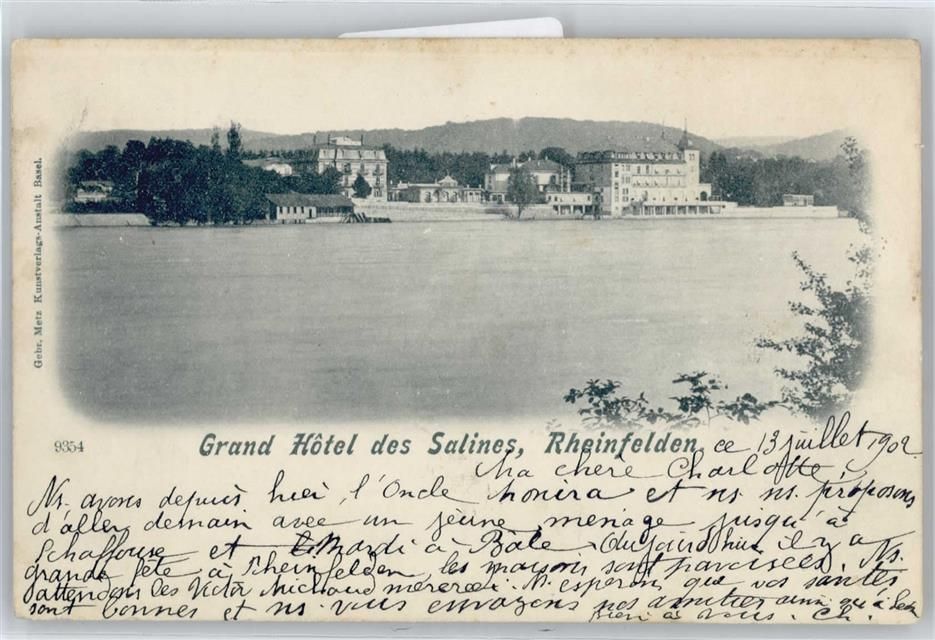 Gebr. Metz Kunstverlags-Anstalt Basel.
9354
Grand Hôtel des Salines, Rheinfelden, ce 13 juillet 1902
Ma chère Charlotte,
Ns. avons depuis hier, l'Oncle et ns. ns. proposons
d'aller demain avec un jeune ménage jusqu'à
Schaffouse et Mardi à Bâle. Aujourd'hui il y a
grande fête à Rheinfelden, les maisons sont pavoisées. Ns.
attendons les Victor Michaud mercredi. Ns. espérons que vos santés
sont bonnes et ns. vous envoyons nos amitiés ainsi qu'à
bien à vous. Ch.